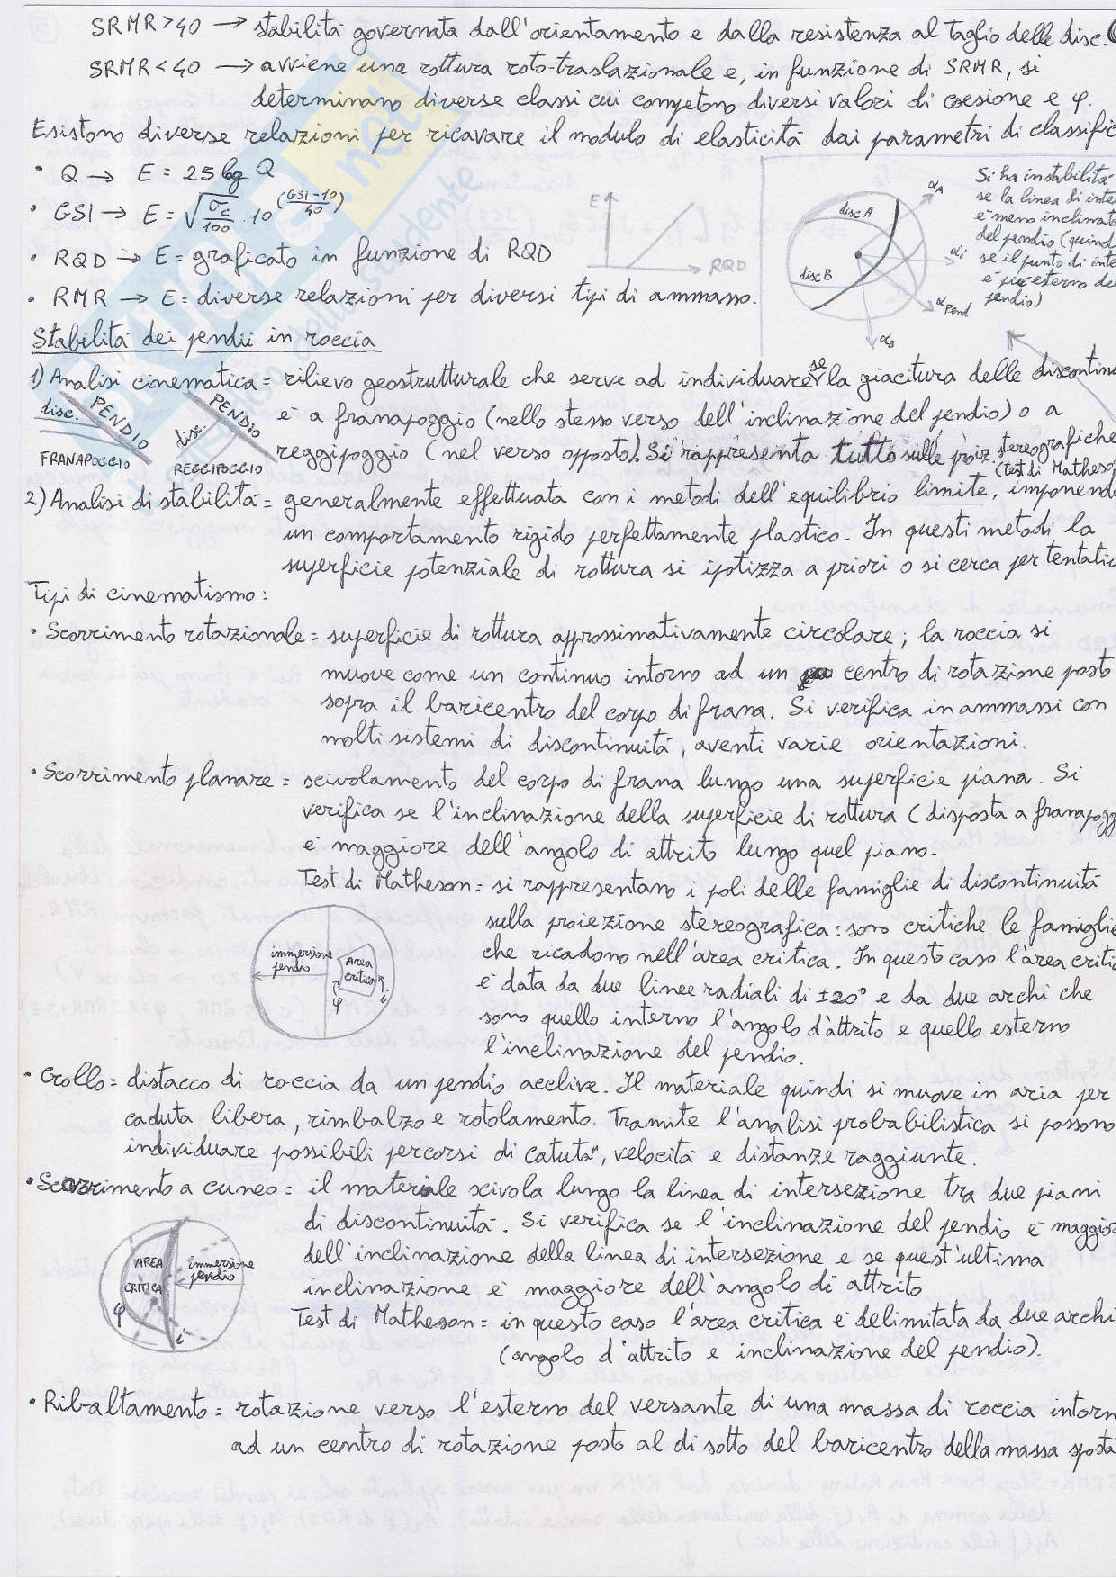 SRMR>40 → stabilità governata dall'orientamento e dalla resistenza al taglio delle disc.
SRMR<40 → avviene una rottura roto-traslazionale e, in funzione di SRMR, si
determinano diverse classi cui competono diversi valori di coesione e φ.
Esistono diverse relazioni per ricavare il modulo di elasticità dai parametri di classific
• Q → E = 25 log Q
• GSI → E = √(σc/100) · 10^((GSI-10)/40)
• RQD → E = graficato in funzione di RQD
• RMR → E = diverse relazioni per diversi tipi di ammasso.
E
RQD
disc A
disc B
αA
αi
αPend
αB
Si ha instabilità
se la linea di inte
è meno inclinata
del pendio (quind
se il punto di inte
è più esterno de
pendio)
Stabilità dei pendii in roccia
1) Analisi cinematica = rilievo geostrutturale che serve ad individuare se la giacitura delle discontinu
è a franapoggio (nello stesso verso dell'inclinazione del pendio) o a
reggipoggio (nel verso opposto). Si rappresenta tutto sulle proiez. stereografiche
(test di Matheso
disc.
PENDIO
FRANAPOGGIO
disc.
PENDIO
REGGIPOGGIO
2) Analisi di stabilità = generalmente effettuata con i metodi dell'equilibrio limite, imponend
un comportamento rigido perfettamente plastico. In questi metodi la
superficie potenziale di rottura si ipotizza a priori o si cerca per tentativ
Tipi di cinematismo:
• Scorrimento rotazionale = superficie di rottura approssimativamente circolare; la roccia si
muove come un continuo intorno ad un centro di rotazione posto
sopra il baricentro del corpo di frana. Si verifica in ammassi con
molti sistemi di discontinuità, aventi varie orientazioni.
• Scorrimento planare = scivolamento del corpo di frana lungo una superficie piana. Si
verifica se l'inclinazione della superficie di rottura (disposta a franapogg
è maggiore dell'angolo di attrito lungo quel piano.
Test di Matheson = si rappresentano i poli delle famiglie di discontinuità
sulla proiezione stereografica: sono critiche le famiglie
che ricadono nell'area critica. In questo caso l'area critic
è data da due linee radiali di ±20° e da due archi che
sono quello interno l'angolo d'attrito e quello esterno
l'inclinazione del pendio.
immersione
pendio
AREA
critica
φ
i
• Crollo = distacco di roccia da un pendio acclive. Il materiale quindi si muove in aria per
caduta libera, rimbalzo e rotolamento. Tramite l'analisi probabilistica si possono
individuare possibili percorsi di catuta", velocità e distanze raggiunte.
• Scorrimento a cuneo = il materiale scivola lungo la linea di intersezione tra due piani
di discontinuità. Si verifica se l'inclinazione del pendio è maggio
dell'inclinazione della linea di intersezione e se quest'ultima
inclinazione è maggiore dell'angolo di attrito
Test di Matheson = in questo caso l'area critica è delimitata da due archi
(angolo d'attrito e inclinazione del pendio).
AREA
CRITICA
immersione
pendio
φ
i
• Ribaltamento = rotazione verso l'esterno del versante di una massa di roccia intorn
ad un centro di rotazione posto al di sotto del baricentro della massa sposta